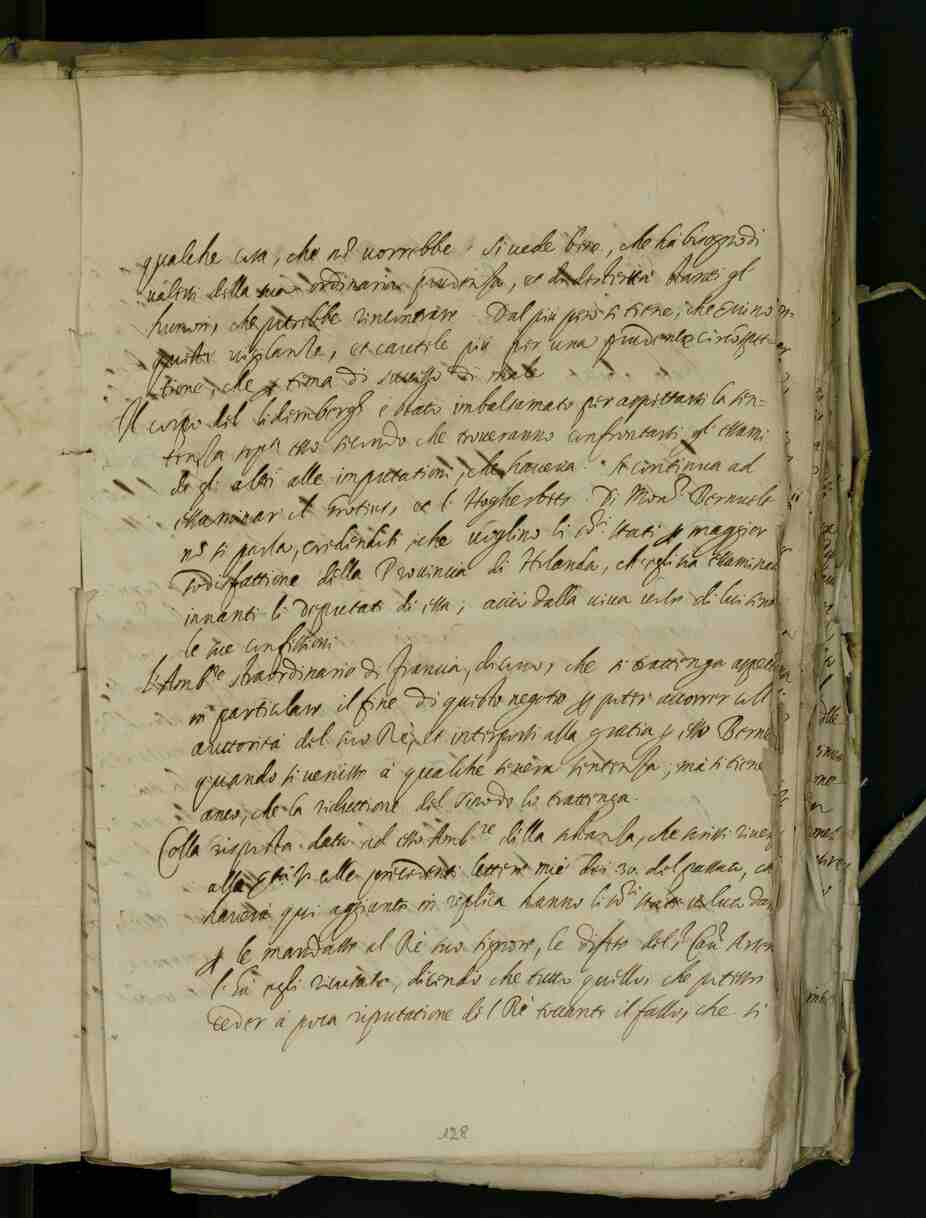 qualche cosa, che nõ vorrebbe. Si vede bene, che ha bisogno di
valersi della sua ordinaria prudenza, et
humori, che potrebbe rincontrare. Dal più però si tiene, che
questa vigilanza, et cautele più per una prudente circospet-
tione, che p tema di successo di male
Il corpo del Lidembergh è stato imbalsamato per aspettarsi la sen-
tenza sop.ª esso secondo che troveranno confrontarsi gl'essami
de gl'altri alle imputationi, che haveva. Si continua ad
essaminar il Grotius, et l'Hogherbets. Di Mons.r Bernvelt
nõ si parla, credendosi, che voglino li ss.ri Stati p maggior
sodisfattione della Provincia di Holanda, che egli sia essaminato
innanti li deputati di essa; acciò dalla viva voce di lui
le sue confessioni
L'Amb.re straordinario di Francia, dicono, che si trattenga
in particolare il fine di questo negotio p poter accorrer coll'
auttorità del suo Rè, et interporsi alla gratia p esso
quando si venisse à qualche severa sentenza; mà si tiene
anco, che la riduttione del Sinodo lo trattenga.
Colla risposta data ad esso Amb.re della sostanza, che scrissi
alla precedenti lettere mie dei 30. del passato,
haveva qui aggiunto in replica hanno li ss.ri Stati voluto
p le mandasse al Rè suo signore, le difese del s.r Cau.r
l'hà egli ricusato, dicendo che tutto quello, che potesse
ceder à poca riputatione del Rè toccante il fallo, che si
128